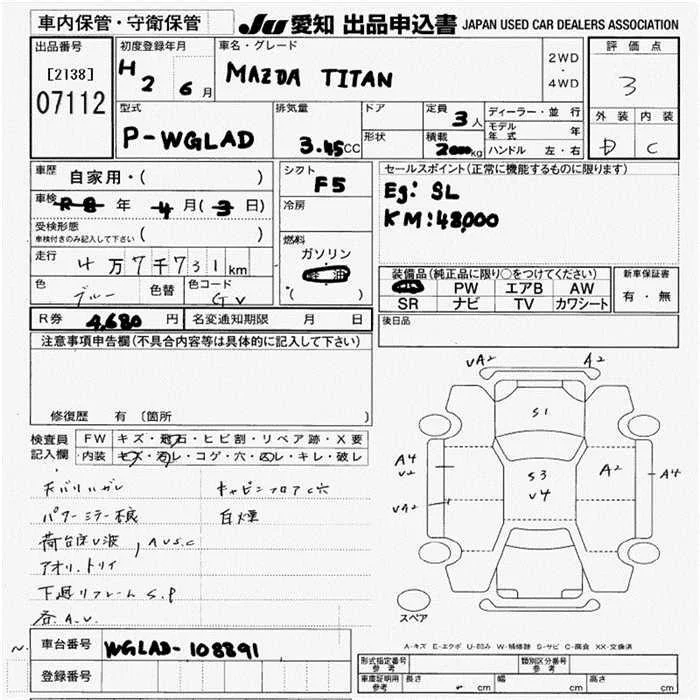 車内保管・守衛保管
JU 愛知 出品申込書 JAPAN USED CAR DEALERS ASSOCIATION
出品番号
[2138]
07112
初度登録年月
H 2 6 月
車名・グレード
MAZDA TITAN
2WD
・
4WD
評価点
3
外装 内装
D C
型式
P-WGLAD
排気量
3.45CC
ドア
形状
定員 3人
積載 2000kg
ディーラー・並行
モデル年式 年
ハンドル 左・右
車歴 自家用・( )
車検 R-8 年 4 月(3 日)
受検形態
車検付きのみ記入して下さい ( )
走行 4万7千731km
色 ブルー 色替 色コード GV
シフト F5
冷房
燃料
ガソリン
軽油
( )
セールスポイント(正常に機能するものに限ります)
Eg: SL
KM:48,000
装備品(純正品に限り○をつけてください)
PW エアB AW
SR ナビ TV カワシート
新車保証書
有・無
R券 4,680 円 名変通知期限 月 日
後日品
注意事項申告欄(不具合内容等は具体的に記入して下さい)
修復歴 有 〔箇所 〕
検査員
記入欄
FW キズ・飛石・ヒビ割・リペア跡・X要
内装 キズ・汚レ・コゲ・穴・凹レ・キレ・破レ
キャビンフロアC穴
パワーミラー
白煙
荷台床U波, AUSC
アオリ,トリイ
下廻リフレーム S.P
各A.U.
UA2 A2
S1
A4
U2
S3
U4
A2
A4
UA2
スペア
A-キズ E-エクボ U-凹み W-補修跡 S-サビ C-腐食 XX-交換済
車台番号 WGLAD-108891
登録番号
形式指定番号
参考
類別区分番号
参考
車庫証明用
参考
長さ cm 幅 cm 高さ cm